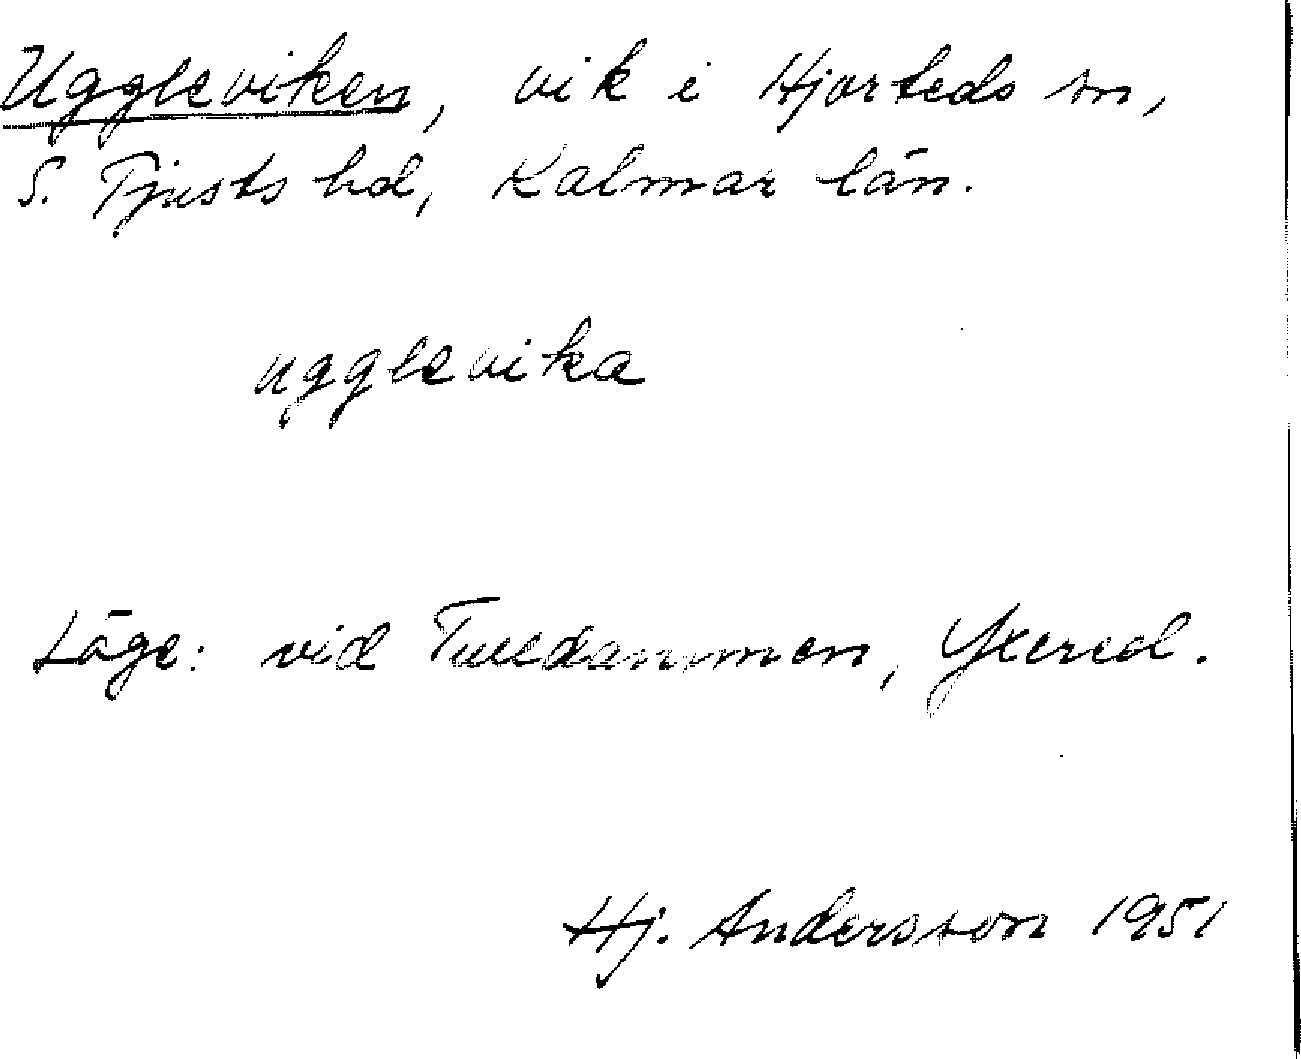 Uggleviken, vik i Hjorteds sn,
S. Tjusts hd, Kalmar län.
ugglevika
Läge: vid Tuledammen, Yxered.
Hj. Andersson 1951